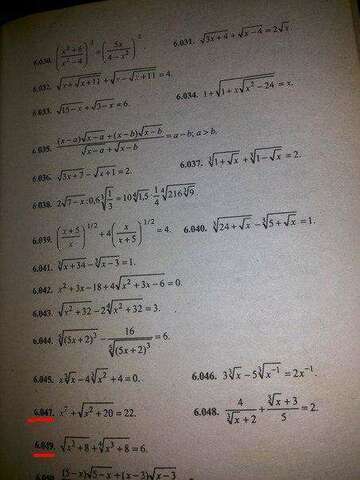 6.030. ((x²+6)/(x²−4))² = (5x/(4−x²))².
6.031. √(3x+4) + √(x−4) = 2√x.
6.032. √(x+√(x+11)) + √(x−√(x+11)) = 4.
6.033. √(15−x) + √(3−x) = 6.
6.034. 1+√(1+x√(x²−24)) = x.
6.035. ((x−a)√(x−a)+(x−b)√(x−b))/(√(x−a)+√(x−b)) = a−b; a>b.
6.036. √(3x+7) − √(x+1) = 2.
6.037. ∛(1+√x) + ∛(1−√x) = 2.
6.038.
6.039. ((x+5)/x)^(1/2) + 4(x/(x+5))^(1/2) = 4.
6.040. ∛(24+√x) − ∛(5+√x) = 1.
6.041. ∛(x+34) − ∛(x−3) = 1.
6.042. x²+3x−18+4√(x²+3x−6) = 0.
6.043. √(x²+32) − 2⁴√(x²+32) = 3.
6.044. ⁵√((5x+2)³) − 16/⁵√((5x+2)³) = 6.
6.045. x∛x − 4∛x² + 4 = 0.
6.046. 3∛x − 5∛x⁻¹ = 2x⁻¹.
6.047. x²+√(x²+20) = 22.
6.048. 4/(∛x+2) + (∛x+3)/5 = 2.
6.049. √(x³+8) + ⁴√(x³+8) = 6.
(5−x)√(5−x)+(x−3)√(x−3)